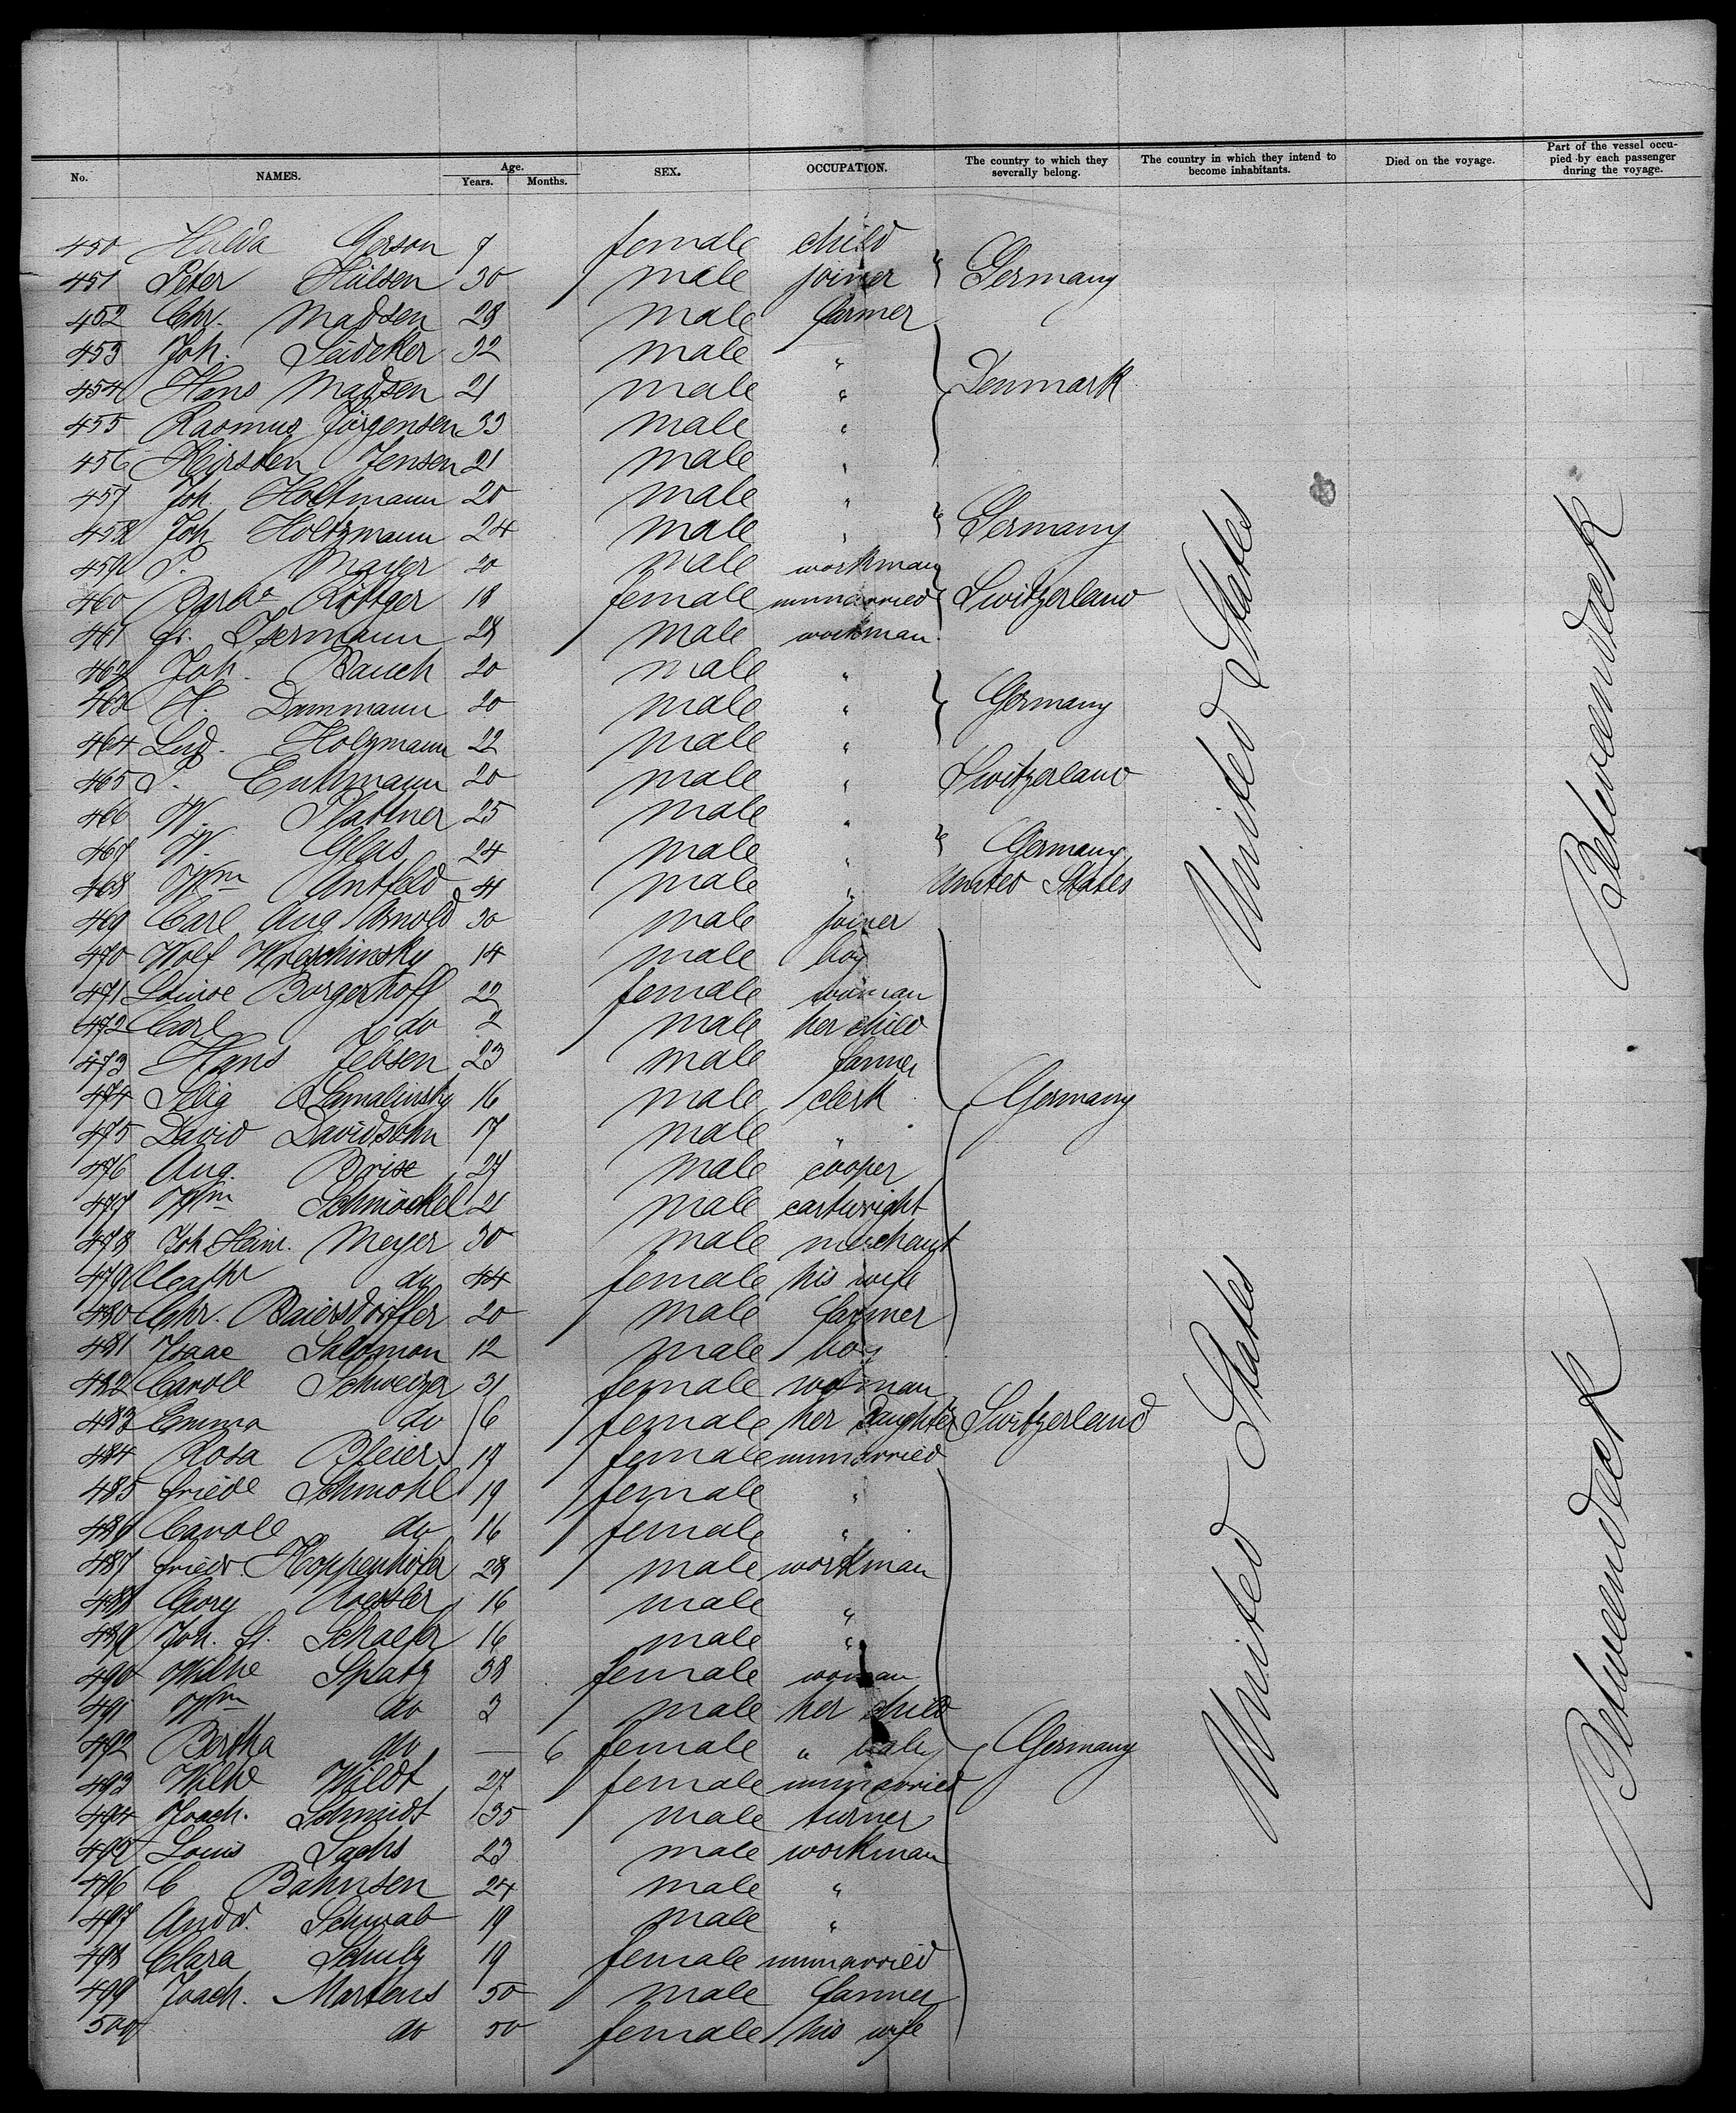 No. NAMES. Age. Years. Months. SEX. OCCUPATION. The country to which they severally belong. The country in which they intend to become inhabitants. Died on the voyage. Part of the vessel occupied by each passenger during the voyage.
450 Hulda Gerson 7 female child
451 Peter Hülsen 30 male joiner } Germany
452 Chr. Madsen 28 male farmer
453 Joh. Südeker 32 male "
454 Hans Madsen 21 male " } Denmark
455 Rasmus Jörgensen 33 male "
456 Kirsten Jensen 21 male "
457 Joh. Holtmann 20 male "
458 Joh. Holtzmann 24 male " } Germany
459 S. Mayer 20 male workman
460 Barba Röttger 18 female unmarried } Switzerland
461 Fr. Isermann 28 male workman
462 Joh. Bauch 20 male "
463 H. Dammann 20 male " } Germany
464 Lud. Holzmann 22 male "
465 S. Enkmann 20 male " Switzerland
466 W. Plattner 25 male "
467 W. Glas 24 male " } Germany
468 Wm Antfeld 41 male " United States
469 Carl Aug Arnold 30 male joiner
470 Wolf Wreschinsky 14 male boy
471 Louise Borgerhoff 22 female woman
472 Carl do 2 male her child
473 Hans Jebsen 23 male farmer
474 Selig Samalinsky 16 male clerk } Germany
475 David Davidsohn 17 male "
476 Aug. Brise 27 male cooper
477 Wm Schmöckel 21 male cartwright
478 Joh Heinr. Meyer 30 male merchant
479 Cathr do 44 female his wife
480 Chr. Baiersdörffer 20 male farmer
481 Isaac Salomon 12 male boy
482 Caroll Schweizer 31 female woman
483 Emma do 6 female her daughter Switzerland
484 Rosa Bleier 17 female unmarried
485 Friede Schmohl 19 female "
486 Caroll do 16 female "
487 Friedr. Koppenhöfer 28 male workman
488 Georg Roessler 16 male "
489 Joh. Fr. Schaefer 16 male "
490 Wilhe Spatz 38 female woman
491 Wm do 3 male her child
492 Bertha do — 6 female " baby } Germany
493 Wilhe Wildt 27 female unmarried
494 Joach. Schmidt 35 male turner
495 Louis Sachs 23 male workman
496 C Bahnsen 24 male "
497 Andr. Schwab 19 male "
498 Clara Schulz 19 female unmarried
499 Joach. Martens 50 male farmer
500 do 50 female his wife
United States
United States
Betweendeck
Betweendeck